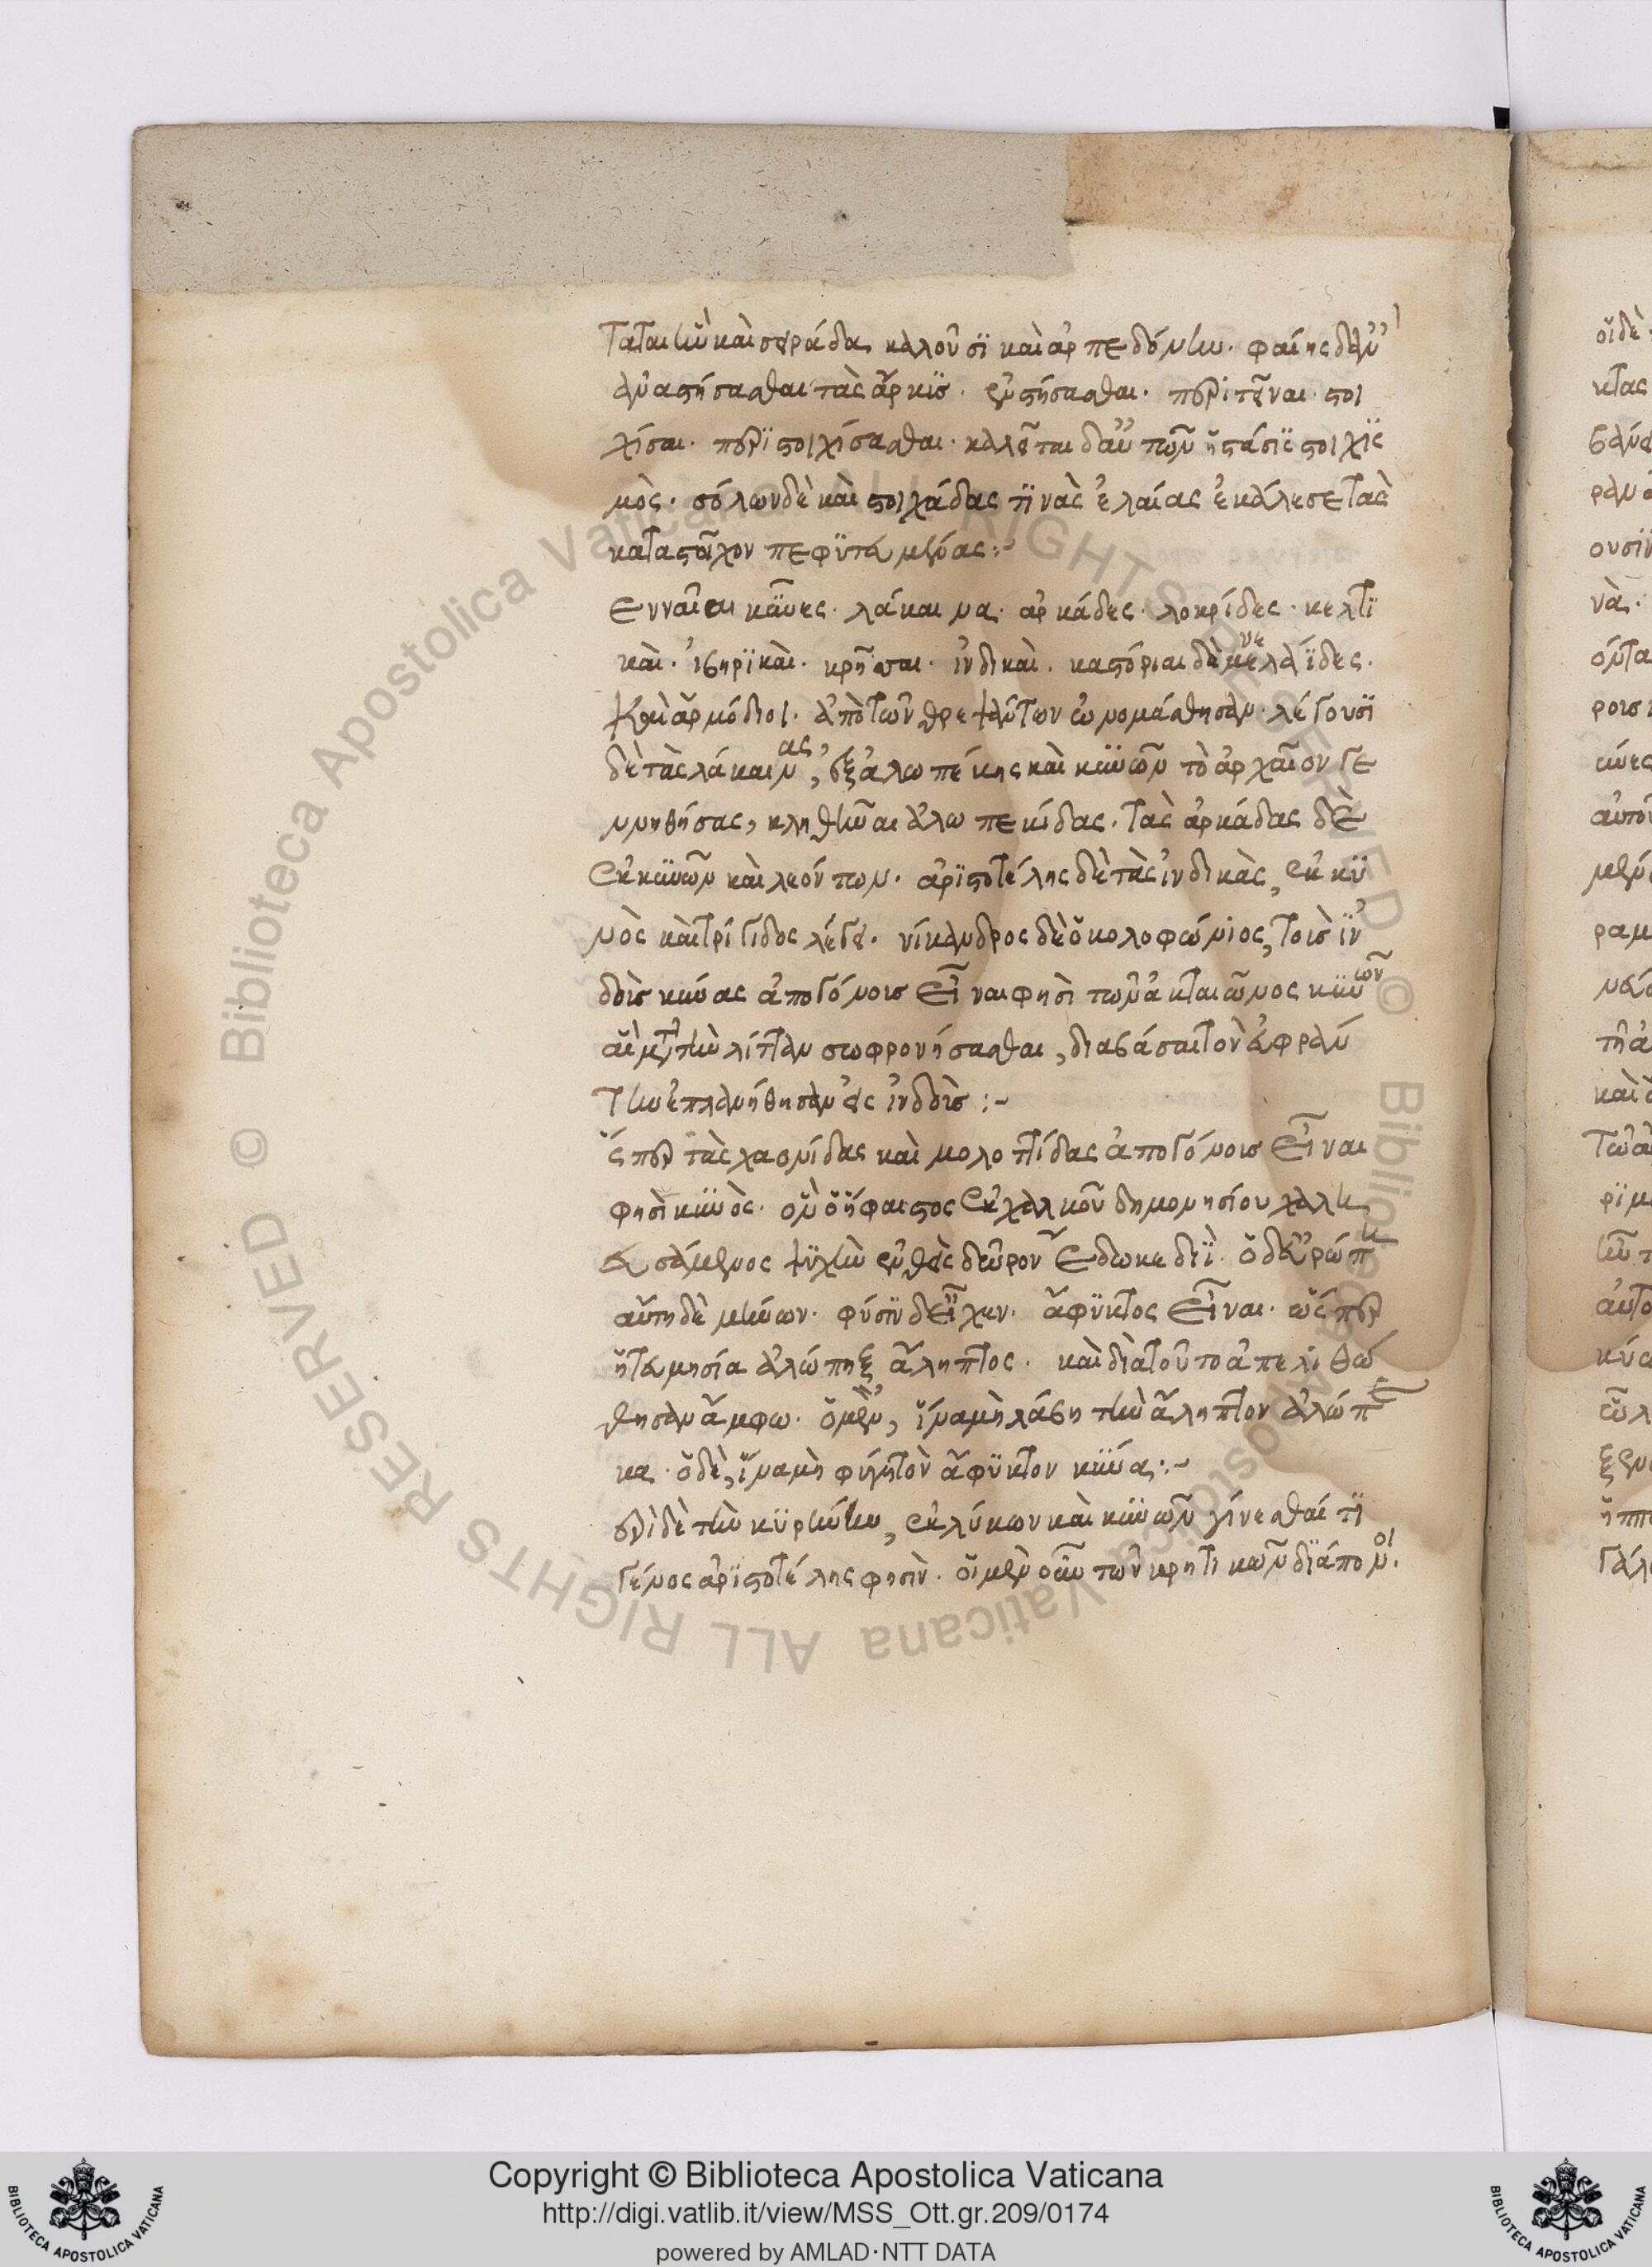 ταται ἣν καὶ σειράδα καλοῦσι καὶ ἀρπεδόνην. φαίης δ' ἂν
ἀναστήσασθαι τὰς ἄρκυς. ἐνστήσασθαι. περιτεῖναι. στοι
χίσαι. περιστοιχίσασθαι. καλεῖται δ' αὐτῶν ἡ στάσις στοιχισ
μός. σόλων δὲ καὶ στοιχάδας τινὰς ἐλαίας ἐκάλεσε τὰς
κατὰ στοῖχον πεφυτευμένας:~
Γενναῖαι κύνες. λάκαιναι. ἀρκάδες. λοκρίδες. κελτι
καὶ. ἰβηρικαὶ. κρῆσσαι. ἰνδικαὶ. καστόριαι δὲ μενελαΐδες.
καὶ ἁρμόδιοι. ἀπὸ τῶν θρεψάντων ὠνομάσθησαν. λέγουσι
δὲ τὰς λακαίνας, ἐξ ἀλωπέκης καὶ κυνῶν τὸ ἀρχαῖον γε
νηθήσας, κληθῆναι ἀλωπεκίδας. τὰς ἀρκάδας δὲ
ἐκ κυνῶν καὶ λεόντων. ἀριστοτέλης δὲ τὰς ἰνδικὰς, ἐκ κυ
νὸς καὶ τρίγιδος λέγει. νίκανδρος δὲ ὁ κολοφώνιος, τοὺς ἰν
δοὺς κύνας ἀπογόνους εἶναι φησὶ τῶν ἀκταίωνος κυνῶν
τὴν λύτταν σωφρονήσασθαι, διαβάσαι τὸν εὐφράτην
τὴν ἐπλανήθησαν εἰς ἰνδοὺς:~
ὅσπερ τὰς χαονίδας καὶ μολοττίδας ἀπογόνους εἶναι
φησὶ κυνὸς. ὃν ὁ ἥφαιστος ἐκ χαλκοῦ δημονησίου χαλκευ
σάμενος ψυχὴν ἐνθεὶς δῶρον ἔδωκε διῒ. ὁ δ' εὐρώπῃ
αὕτη δὲ μίνωι. φύσιν δ' εἶχεν. ἄφυκτος εἶναι. ὥσπερ
ἡ τευμησία ἀλώπηξ ἄληπτος. καὶ διὰ τοῦτο ἀπελιθώ
θησαν ἄμφω. ὁ μὲν, ἵνα μὴ λάβῃ τὴν ἄληπτον ἀλώπε
κα. ὁ δὲ, ἵνα μὴ φύγῃ τὸν ἄφυκτον κύνα:~
ἐπὶ δὲ τὴν κυρήνην, ἐκ λύκων καὶ κυνῶν γίνεσθαί τι
γένος ἀριστοτέλης φησὶν. οἱ μὲν οὖν τῶν κρητικῶν διάπονοι.
Copyright © Biblioteca Apostolica Vaticana
http://digi.vatlib.it/view/MSS_Ott.gr.209/0174
powered by AMLAD·NTT DATA